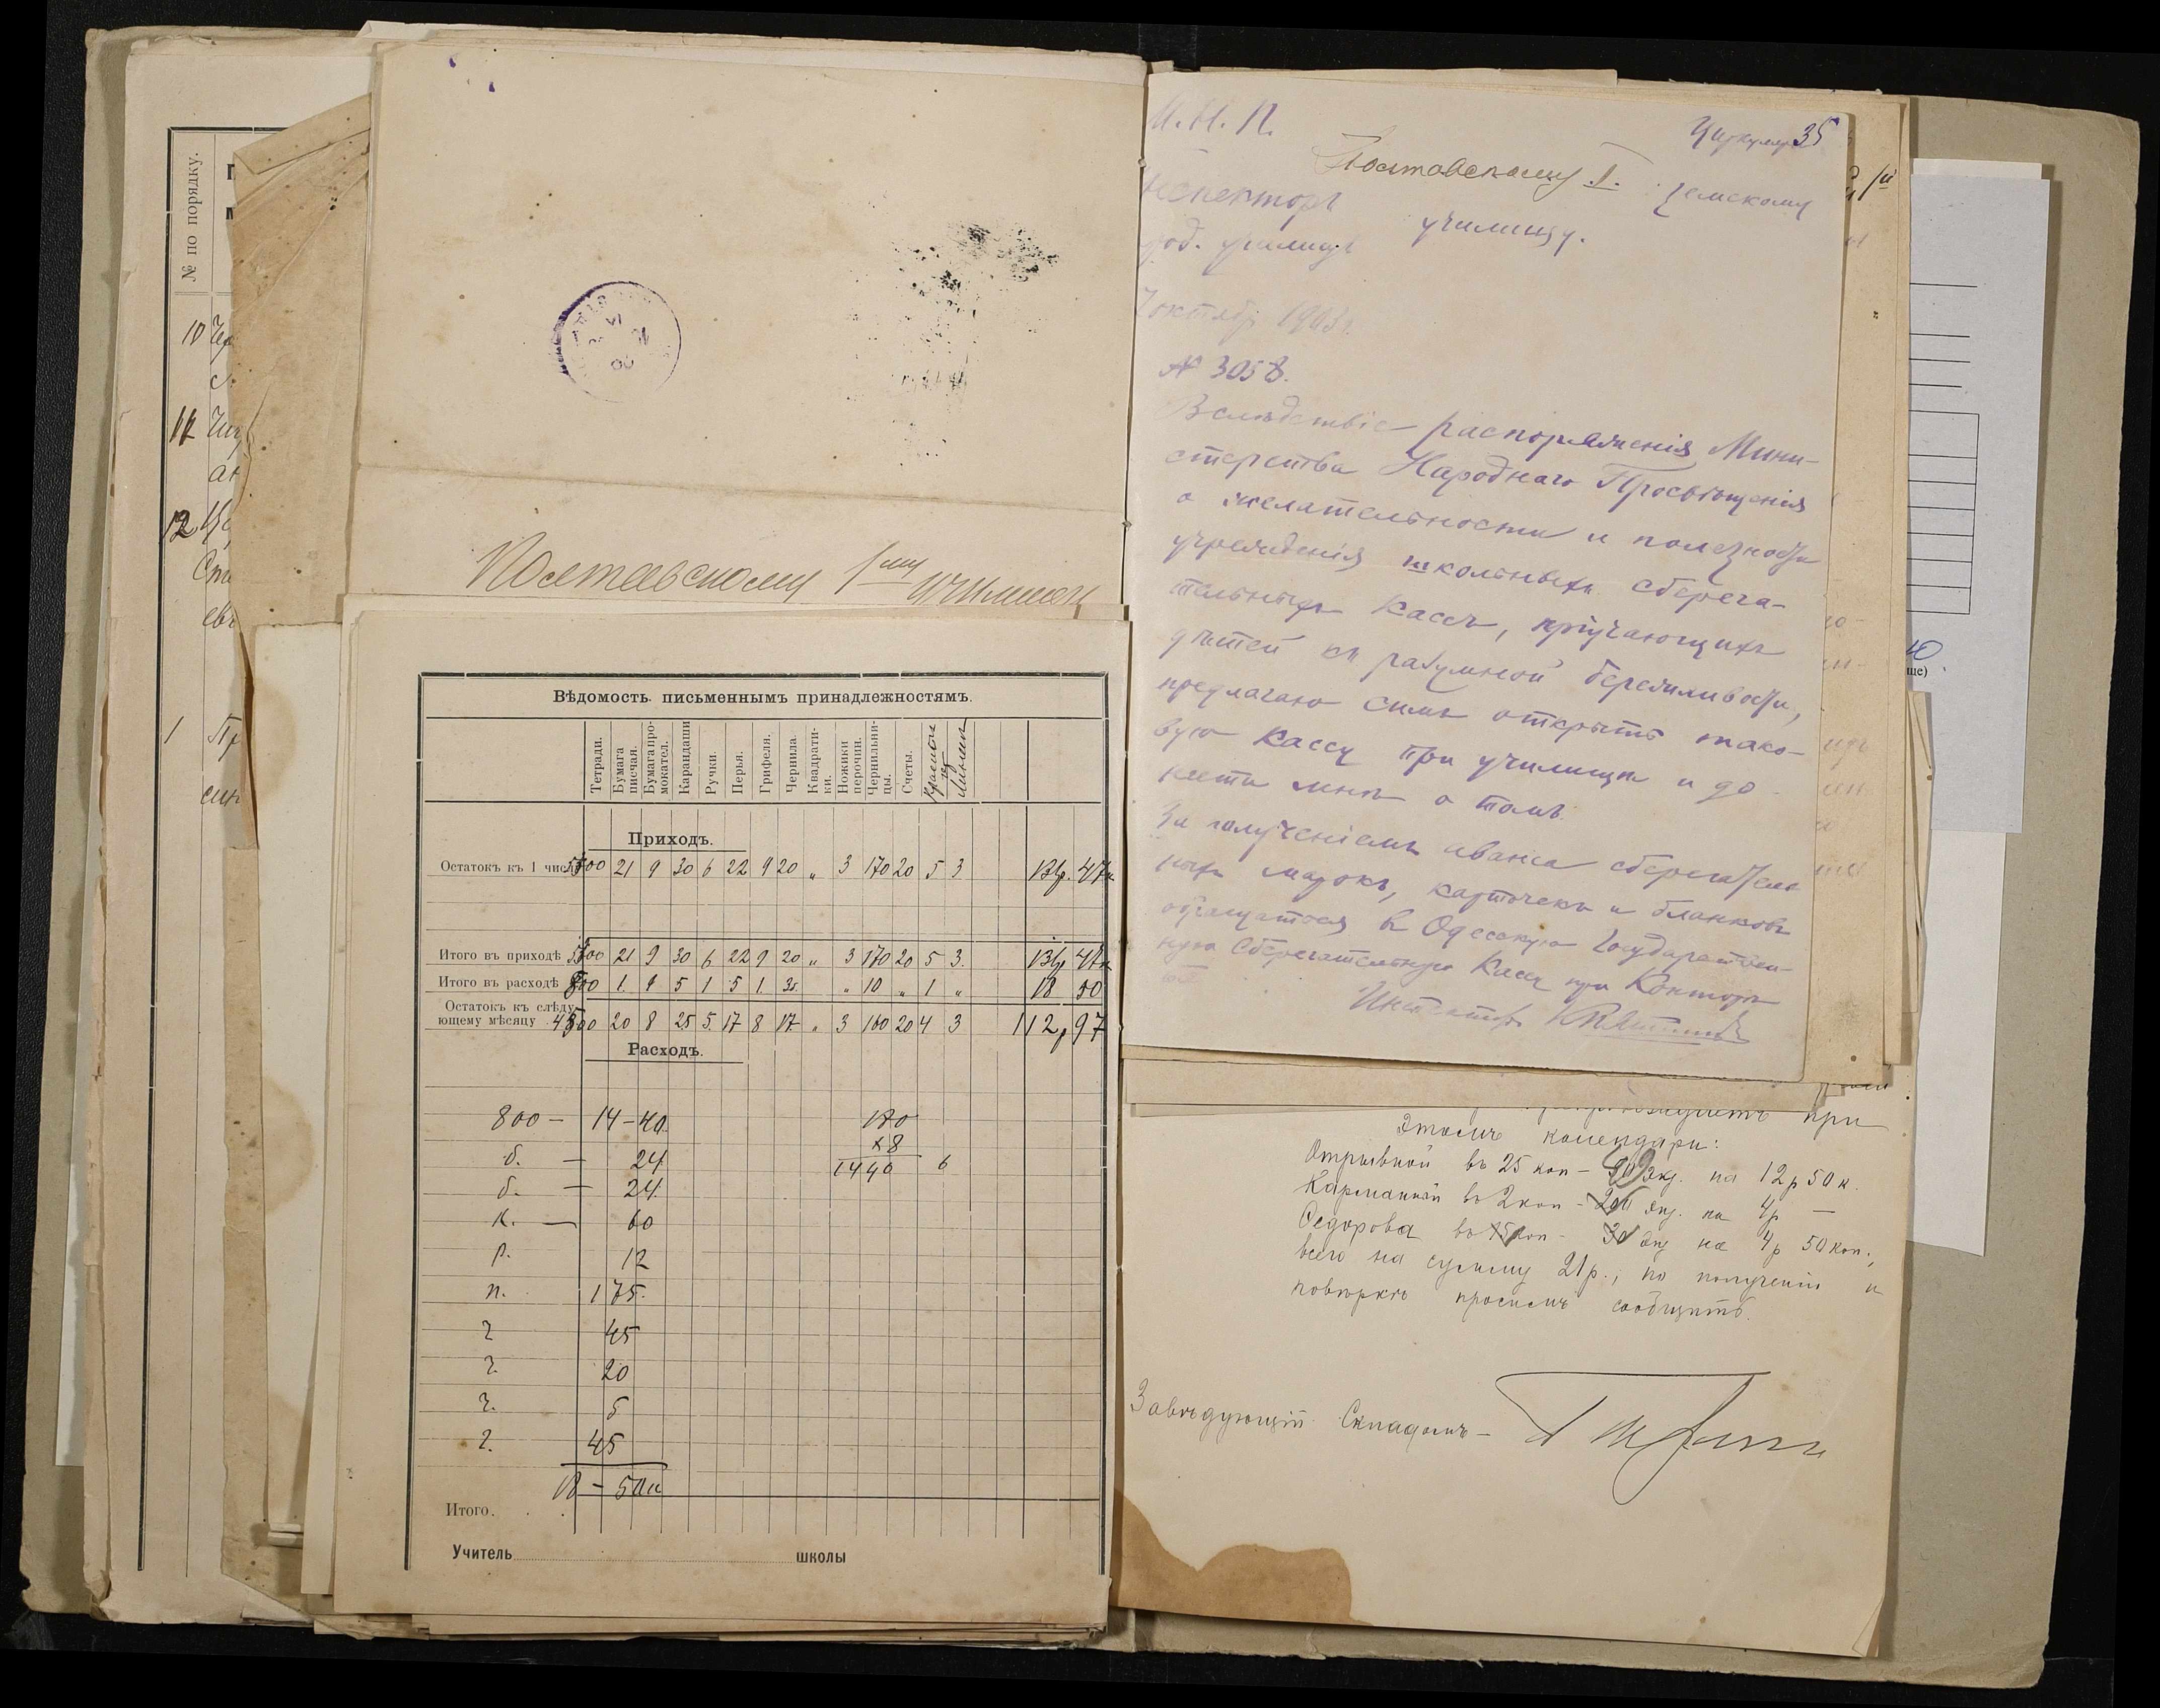 № по порядку.
10
11
12
1
Полтавскому 1му
Вѣдомость письменнымъ принадлежностямъ.
Тетради.
Бумага писчая.
Бумага промокател.
Карандаши
Ручки.
Перья.
Грифеля.
Чернила.
Квадратики.
Ножики перочин.
Чернильницы.
Счеты.
Приходъ.
Остатокъ къ 1 числу 21 9 30 6 22 9 20 „ 3 170 20 5 3
Итого въ приходѣ 21 9 30 6 22 9 20 „ 3 170 20 5 3.
Итого въ расходѣ 800 1. 1 5 1 5 1. „ 10 „ 1 „ 18 50
Остатокъ къ слѣду-
ющему мѣсяцу 20 8 25 5. 17 8 17 „ 3 160 20 4 3 112 р 97
Расходъ.
800 — 14 — 40. 180
×8
б. — 24 1440 6
б. — 24.
к. — 60
р. 12
п. 1 75.
г 45
г. 20
г. 5
г. 45
18 — 50 к
Итого.
Учитель школы
М. Н. П.
Циркуляр 35
Полтавскому I. земскому
училищу.
октябр 1903 г.
№ 3058.
Вслѣдствіе распоряженія Мини-
стерства Народнаго Просвѣщенія
о желательности и полезности
учрежденія школьныхъ сберега-
тельныхъ кассъ, пріучающихъ
дѣтей къ разумной бережливости,
предлагаю симъ открыть тако-
вую кассу при училищѣ и до-
нести мнѣ о томъ.
За полученіемъ аванса сберегатель
ныхъ марокъ, карточекъ и бланковъ
обращаться в Одесскую Государствен-
ную Сберегательную Кассу при Конторѣ
Инспекторъ
при
этомъ календари:
Отрывной въ 25 коп — экз. на 12 р 50 к.
Карманный въ 2 коп — экз. на 4 р —
Седорова въ 15 коп — 30 экз на 4 р 50 коп.,
всего на сумму 21 р., по полученіи и
повѣркѣ просимъ сообщить.
Завѣдующій Складомъ —